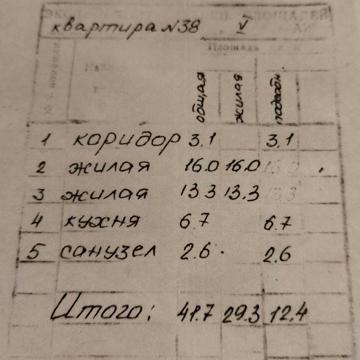 квартира N38 V
Площадь
общая жилая подсобн.
1 коридор 3,1 3,1
2 жилая 16.0 16.0
3 жилая 13.3 13.3
4 кухня 6.7 6.7
5 санузел 2.6 2,6
Итого: 41.7 29.3 12.4